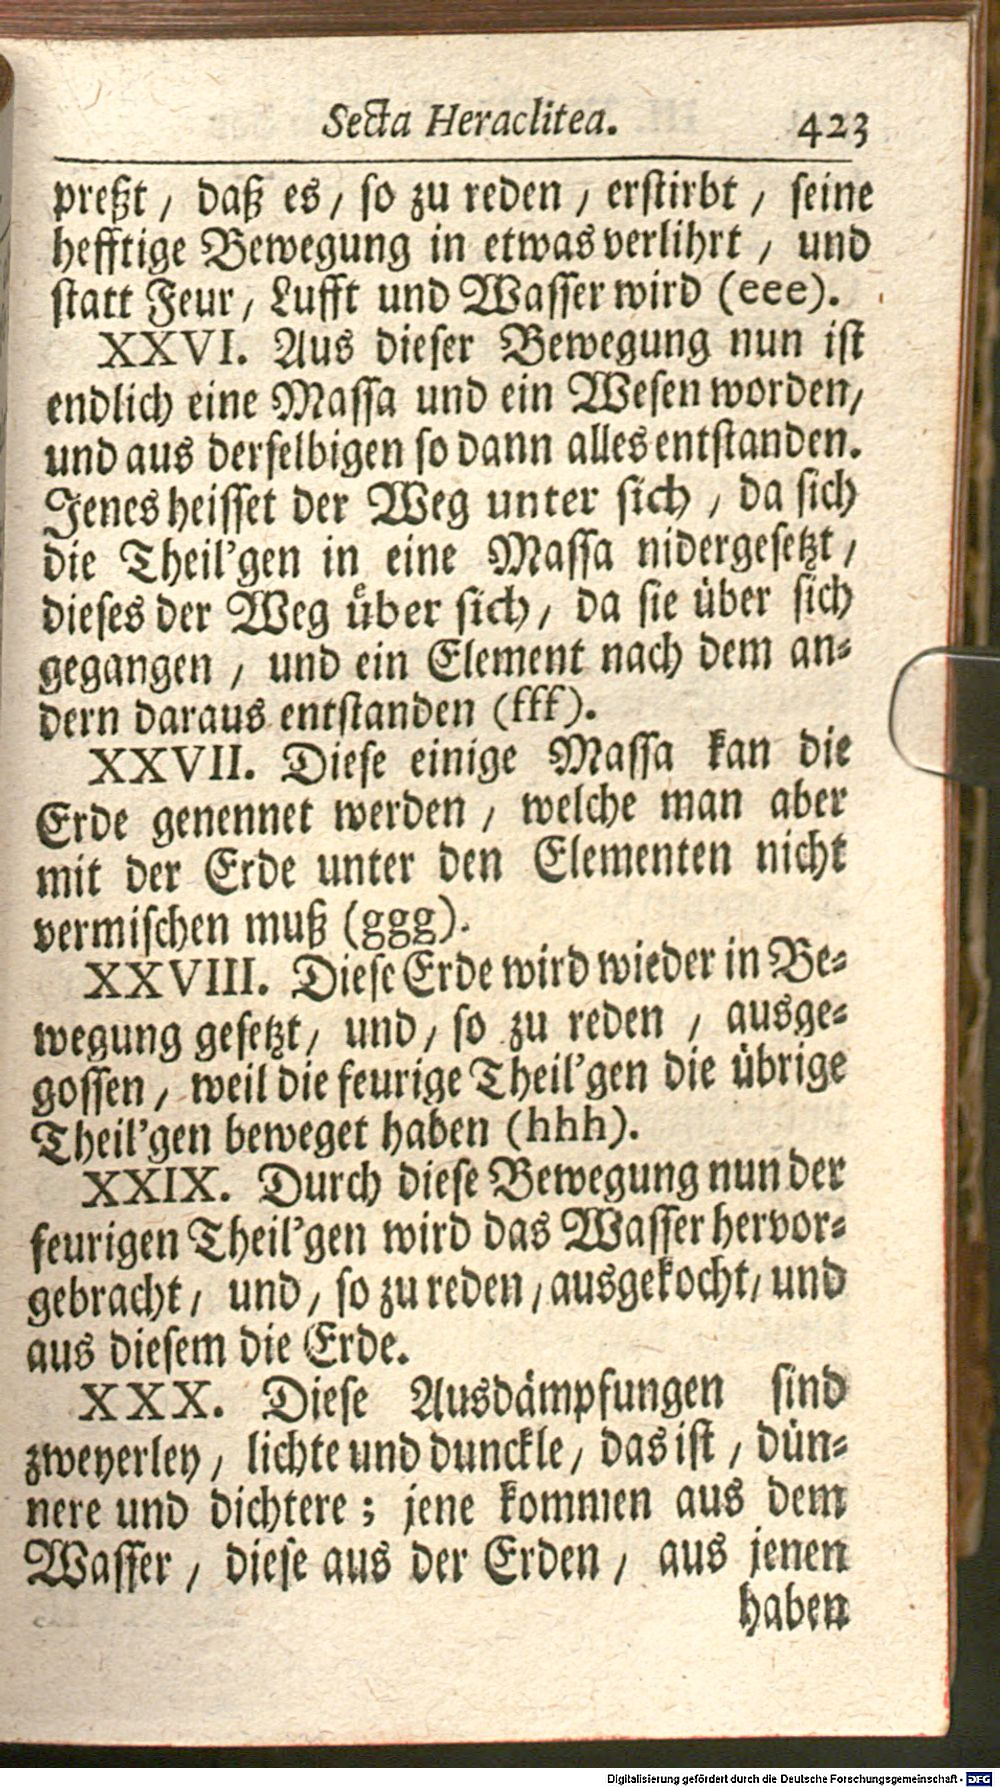 Secta Heraclitea. 423
preßt / daß es / so zu reden / erstirbt / seine
hefftige Bewegung in etwas verlihrt / und
statt Feur / Lufft und Wasser wird (eee).
XXVI. Aus dieser Bewegung nun ist
endlich eine Massa und ein Wesen worden /
und aus derselbigen so dann alles entstanden.
Jenes heisset der Weg unter sich / da sich
die Theil'gen in eine Massa nidergesetzt /
dieses der Weg über sich / da sie über sich
gegangen / und ein Element nach dem an-
dern daraus entstanden (fff).
XXVII. Diese einige Massa kan die
Erde genennet werden / welche man aber
mit der Erde unter den Elementen nicht
vermischen muß (ggg).
XXVIII. Diese Erde wird wieder in Be-
wegung gesetzt / und / so zu reden / ausge-
gossen / weil die feurige Theil'gen die übrige
Theil'gen beweget haben (hhh).
XXIX. Durch diese Bewegung nun der
feurigen Theil'gen wird das Wasser hervor-
gebracht / und / so zu reden / ausgekocht / und
aus diesem die Erde.
XXX. Diese Ausdämpfungen sind
zweyerley / lichte und dunckle / das ist / dün-
nere und dichtere ; jene kommen aus dem
Wasser / diese aus der Erden / aus jenen
haben
Digitalisierung gefördert durch die Deutsche Forschungsgemeinschaft - DFG